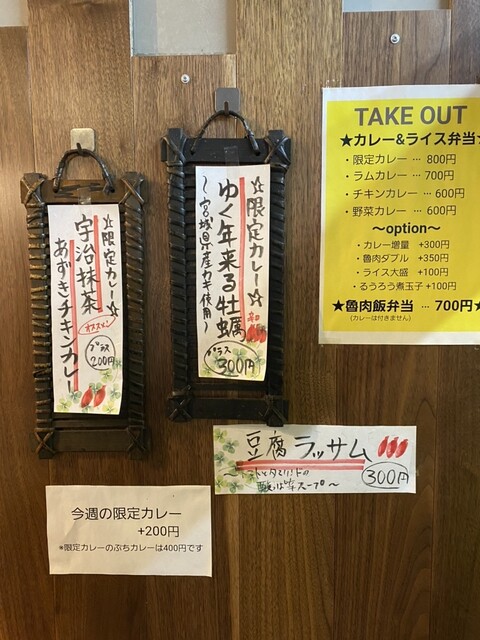 ☆限定カレー☆
宇治抹茶
あずきチキンカレー
オススメ
プラス
200円
☆限定カレー☆
ゆく年来る牡蠣
～宮城県産カキ使用～
プラス
300円
TAKE OUT
★カレー&ライス弁当★
・限定カレー … 800円
・ラムカレー … 700円
・チキンカレー … 600円
・野菜カレー … 600円
～option～
・カレー増量 +300円
・魯肉ダブル +350円
・ライス大盛 +100円
・るうろう煮玉子 +100円
★魯肉飯弁当 … 700円★
(カレーは付きません)
豆腐ラッサム
300円
酸っぱ辛スープ～
今週の限定カレー
+200円
※限定カレーのぷちカレーは400円です